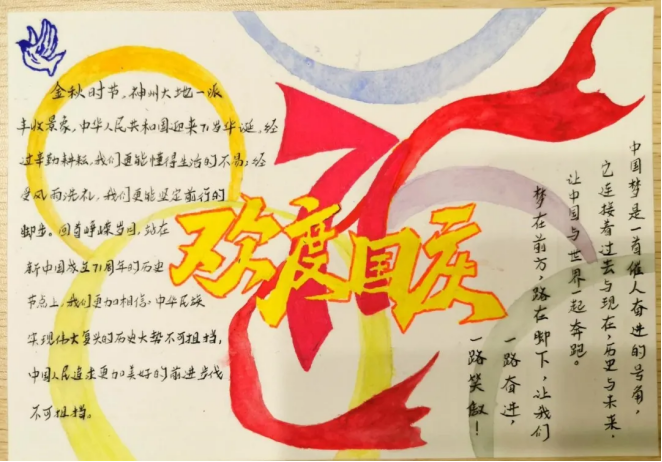 金秋时节，神州大地一派
丰收景象，中华人民共和国迎来71岁华诞，经
过辛勤耕耘，我们更能懂得生活的不易；经
受风雨洗礼，我们更能坚定前行的
脚步。回首峥嵘岁月，站在
新中国成立71周年的历史
节点上，我们更加相信，中华民族
实现伟大复兴的历史大势不可阻挡，
中国人民追求更加美好的前进步伐
不可阻挡。
欢度国庆
中国梦是一首催人奋进的号角，
它连接着过去与现在，历史与未来，
让中国与世界一起奔跑。
梦在前方，路在脚下，让我们
一路奋进，
一路笑傲！